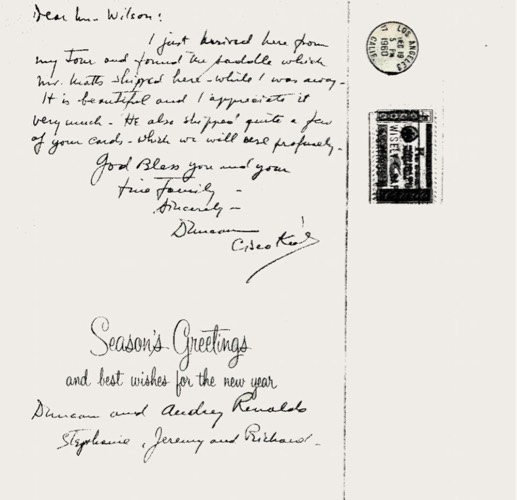 Dear Mr. Wilson:
I just arrived here from
my Tour and found the saddle which
Mr. Watts shipped here - while I was away.
It is beautiful and I appreciate it
very much - He also shipped quite a few
of your cards - which we will use profusely.
God Bless you and your
fine Family -
Sincerely -
Duncan
Cisco Kid!
Season's Greetings
and best wishes for the new year
Duncan and Audrey Renaldo
Stephanie, Jeremy and Richard -
LOS ANGELES
CALIF.
DEC 19
5 PM
1960
WISELY